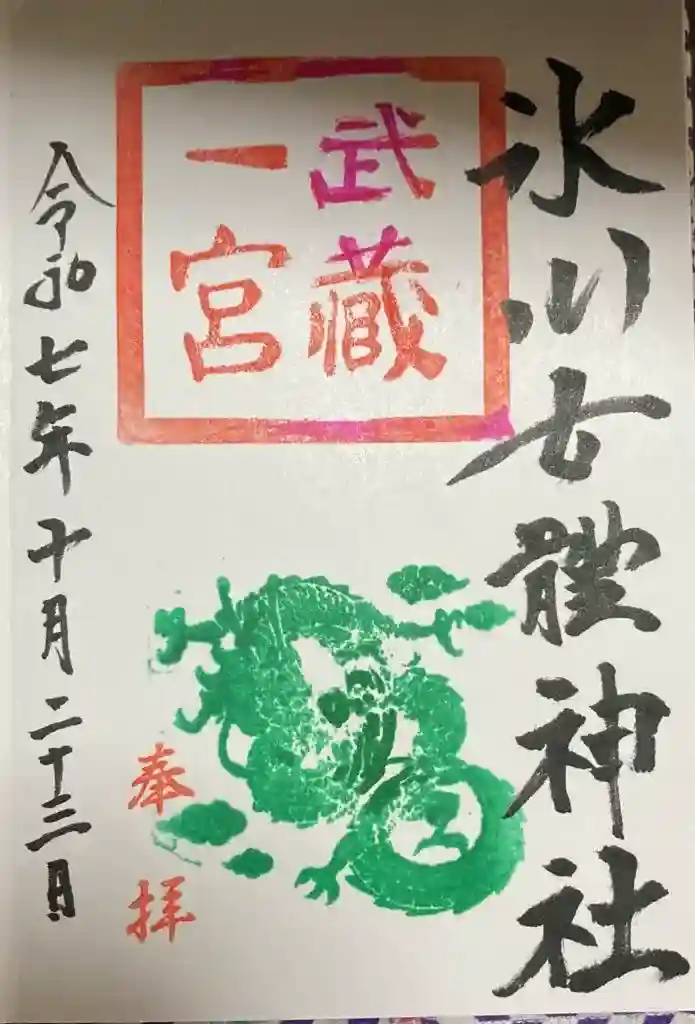 氷川女體神社
武蔵
一宮
奉拝
令和七年十月二十三日